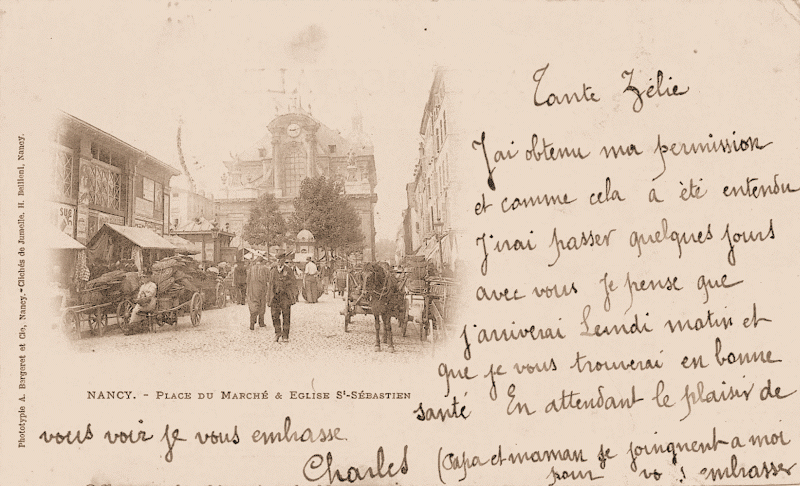 Tante Zélie
J'ai obtenu ma permission
et comme cela a été entendu
J'irai passer quelques jours
avec vous Je pense que
j'arriverai Lundi matin et
que je vous trouverai en bonne
santé En attendant le plaisir de
vous voir je vous embrasse
Charles
(Papa et maman se joingnent a moi
pour vo s embrasser
NANCY. - PLACE DU MARCHÉ & EGLISE St-SÉBASTIEN
Phototypie A. Bergeret et Cie, Nancy. - Clichés de Jumelle, H. Bellieni, Nancy.